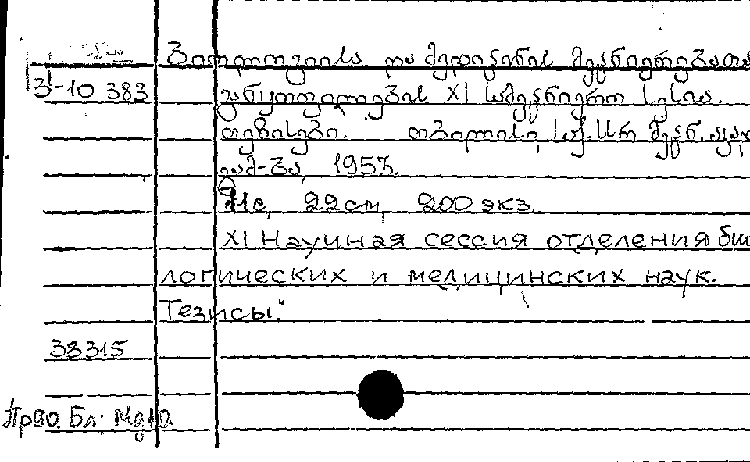 ბიოლოგიისა და მედიცინის მეცნიერებათა
3-10 383 განყოფილების XI სამეცნიერო სესია.
თეზისები. თბილისი, საქ. სსრ მეცნ. აკად
გამ-ბა, 1957.
11с, 22 см, 200 экз.
XI Научная сессия отделения био
логических и медицинских наук.
Тезисы."
33315